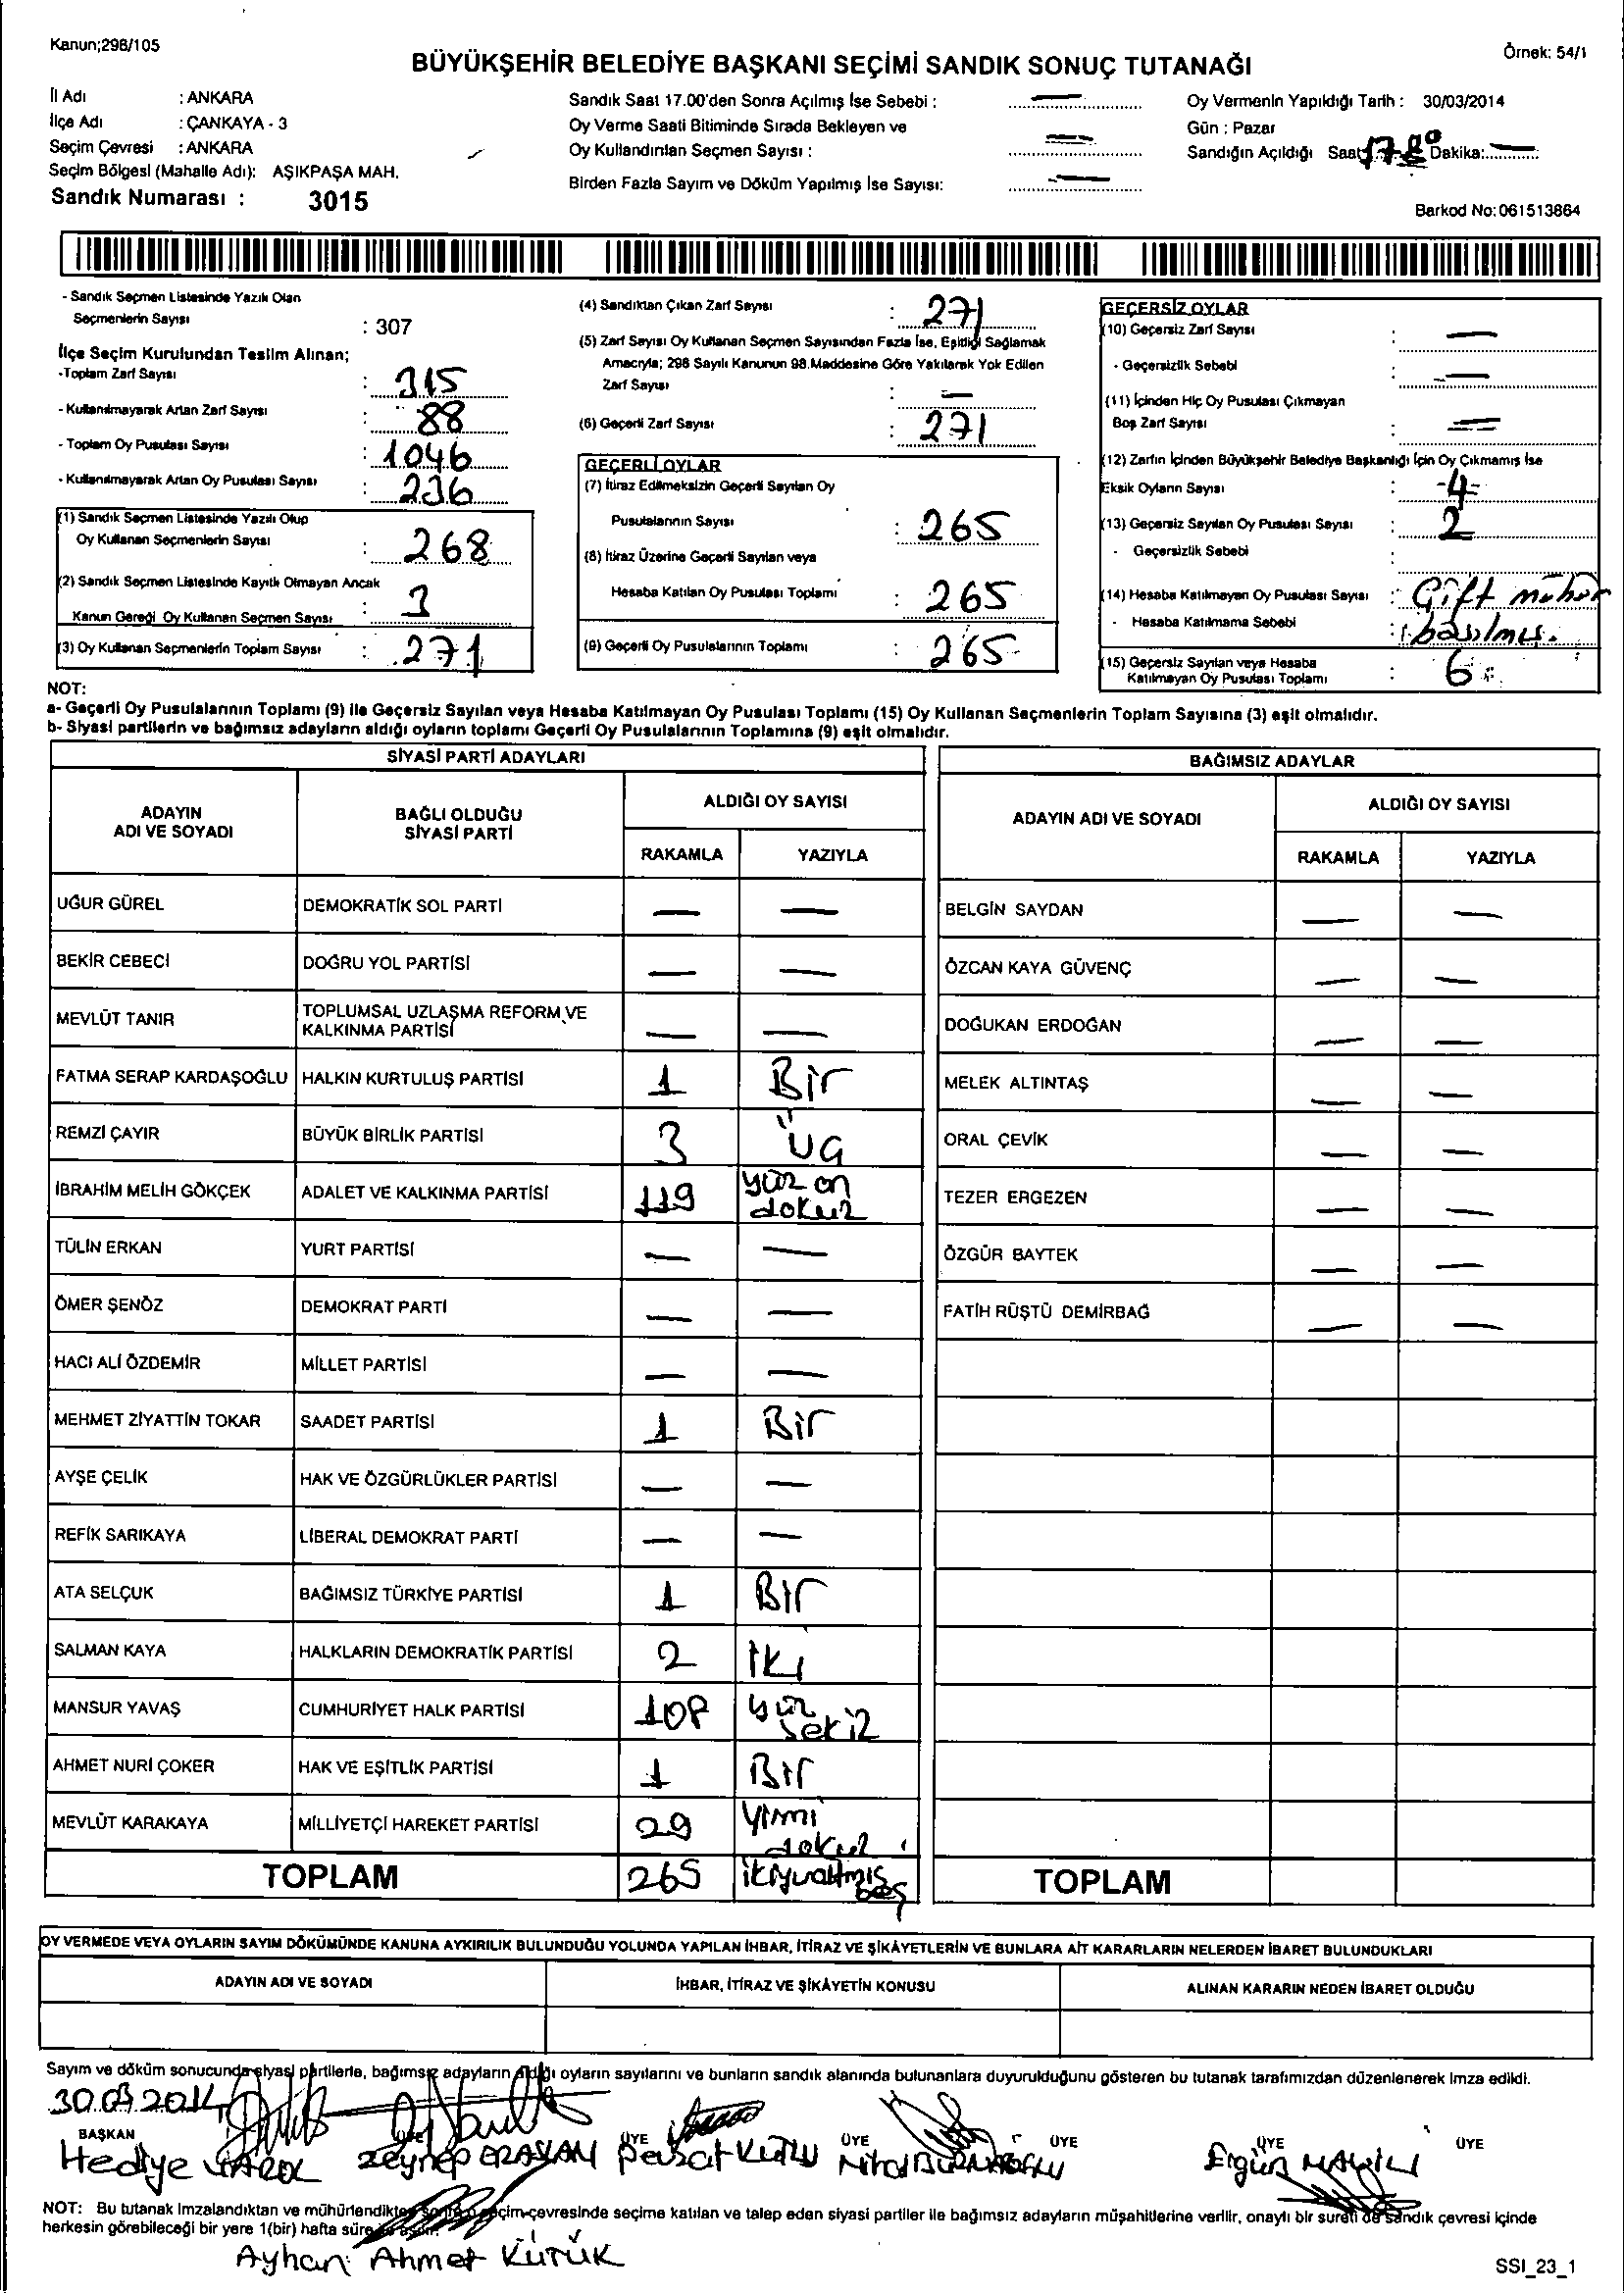 Kanun;298/105
Örnek: 54/1
BÜYÜKŞEHİR BELEDİYE BAŞKANI SEÇİMİ SANDIK SONUÇ TUTANAĞI
İl Adı : ANKARA
İlçe Adı : ÇANKAYA - 3
Seçim Çevresi : ANKARA
Seçim Bölgesi (Mahalle Adı): AŞIKPAŞA MAH.
Sandık Numarası : 3015
Sandık Saat 17.00'den Sonra Açılmış İse Sebebi : —
Oy Verme Saati Bitiminde Sırada Bekleyen ve
Oy Kullandırılan Seçmen Sayısı : —
Birden Fazla Sayım ve Döküm Yapılmış İse Sayısı: —
Oy Vermenin Yapıldığı Tarih : 30/03/2014
Gün : Pazar
Sandığın Açıldığı Saat: Dakika: —
Barkod No: 061513864
- Sandık Seçmen Listesinde Yazılı Olan
Seçmenlerin Sayısı : 307
İlçe Seçim Kurulundan Teslim Alınan;
-Toplam Zarf Sayısı : 315
- Kullanılmayarak Artan Zarf Sayısı : 88
- Toplam Oy Pusulası Sayısı : 1046
- Kullanılmayarak Artan Oy Pusulası Sayısı : 236
(1) Sandık Seçmen Listesinde Yazılı Olup
Oy Kullanan Seçmenlerin Sayısı : 268
(2) Sandık Seçmen Listesinde Kayıtlı Olmayan Ancak
Kanun Gereği Oy Kullanan Seçmen Sayısı : 3
(3) Oy Kullanan Seçmenlerin Toplam Sayısı : 271
(4) Sandıktan Çıkan Zarf Sayısı : 271
(5) Zarf Sayısı Oy Kullanan Seçmen Sayısından Fazla İse, Eşitliği Sağlamak
Amacıyla; 298 Sayılı Kanunun 98.Maddesine Göre Yakılarak Yok Edilen
Zarf Sayısı : —
(6) Geçerli Zarf Sayısı : 271
GEÇERLİ OYLAR
(7) İtiraz Edilmeksizin Geçerli Sayılan Oy
Pusulalarının Sayısı : 265
(8) İtiraz Üzerine Geçerli Sayılan veya
Hesaba Katılan Oy Pusulası Toplamı : 265
(9) Geçerli Oy Pusulalarının Toplamı : 265
GEÇERSİZ OYLAR
(10) Geçersiz Zarf Sayısı : —
- Geçersizlik Sebebi : —
(11) İçinden Hiç Oy Pusulası Çıkmayan
Boş Zarf Sayısı : —
(12) Zarfın İçinden Büyükşehir Belediye Başkanlığı İçin Oy Çıkmamış İse
Eksik Oyların Sayısı : 4
(13) Geçersiz Sayılan Oy Pusulası Sayısı : 2
- Geçersizlik Sebebi :
(14) Hesaba Katılmayan Oy Pusulası Sayısı : Çift mühür
- Hesaba Katılmama Sebebi : basılmış.
(15) Geçersiz Sayılan veya Hesaba
Katılmayan Oy Pusulası Toplamı : 6
NOT:
a- Geçerli Oy Pusulalarının Toplamı (9) ile Geçersiz Sayılan veya Hesaba Katılmayan Oy Pusulası Toplamı (15) Oy Kullanan Seçmenlerin Toplam Sayısına (3) eşit olmalıdır.
b- Siyasi partilerin ve bağımsız adayların aldığı oyların toplamı Geçerli Oy Pusulalarının Toplamına (9) eşit olmalıdır.
SİYASİ PARTİ ADAYLARI
ADAYIN
ADI VE SOYADI
BAĞLI OLDUĞU
SİYASİ PARTİ
ALDIĞI OY SAYISI
RAKAMLA YAZIYLA
UĞUR GÜREL DEMOKRATİK SOL PARTİ — —
BEKİR CEBECİ DOĞRU YOL PARTİSİ — —
MEVLÜT TANIR TOPLUMSAL UZLAŞMA REFORM VE
KALKINMA PARTİSİ — —
FATMA SERAP KARDAŞOĞLU HALKIN KURTULUŞ PARTİSİ 1 Bir
REMZİ ÇAYIR BÜYÜK BİRLİK PARTİSİ 3 ÜÇ
İBRAHİM MELİH GÖKÇEK ADALET VE KALKINMA PARTİSİ 119 yüz on
dokuz
TÜLİN ERKAN YURT PARTİSİ — —
ÖMER ŞENÖZ DEMOKRAT PARTİ — —
HACI ALİ ÖZDEMİR MİLLET PARTİSİ — —
MEHMET ZİYATTİN TOKAR SAADET PARTİSİ 1 Bir
AYŞE ÇELİK HAK VE ÖZGÜRLÜKLER PARTİSİ — —
REFİK SARIKAYA LİBERAL DEMOKRAT PARTİ — —
ATA SELÇUK BAĞIMSIZ TÜRKİYE PARTİSİ 1 Bir
SALMAN KAYA HALKLARIN DEMOKRATİK PARTİSİ 2 İki
MANSUR YAVAŞ CUMHURİYET HALK PARTİSİ 108 yüz
sekiz
AHMET NURİ ÇOKER HAK VE EŞİTLİK PARTİSİ 1 Bir
MEVLÜT KARAKAYA MİLLİYETÇİ HAREKET PARTİSİ 29 Yirmi
dokuz
TOPLAM 265 ikiyüzaltmış
beş
BAĞIMSIZ ADAYLAR
ADAYIN ADI VE SOYADI
ALDIĞI OY SAYISI
RAKAMLA YAZIYLA
BELGİN SAYDAN — —
ÖZCAN KAYA GÜVENÇ — —
DOĞUKAN ERDOĞAN — —
MELEK ALTINTAŞ — —
ORAL ÇEVİK — —
TEZER ERGEZEN — —
ÖZGÜR BAYTEK — —
FATİH RÜŞTÜ DEMİRBAĞ — —
TOPLAM
OY VERMEDE VEYA OYLARIN SAYIM DÖKÜMÜNDE KANUNA AYKIRILIK BULUNDUĞU YOLUNDA YAPILAN İHBAR, İTİRAZ VE ŞİKÂYETLERİN VE BUNLARA AİT KARARLARIN NELERDEN İBARET BULUNDUKLARI
ADAYIN ADI VE SOYADI İHBAR, İTİRAZ VE ŞİKÂYETİN KONUSU ALINAN KARARIN NEDEN İBARET OLDUĞU
Sayım ve döküm sonucunda siyasi partilerle, bağımsız adayların aldığı oyların sayılarını ve bunların sandık alanında bulunanlara duyurulduğunu gösteren bu tutanak tarafımızdan düzenlenerek imza edildi.
30.03.2014
BAŞKAN ÜYE ÜYE ÜYE ÜYE ÜYE
Hediye Zeynep Ergün
NOT: Bu tutanak imzalandıktan ve mühürlendikten sonra seçim çevresinde seçime katılan ve talep eden siyasi partiler ile bağımsız adayların müşahitlerine verilir, onaylı bir sureti de sandık çevresi içinde
herkesin görebileceği bir yere 1(bir) hafta süre ile asılır.
Ayhan Ahmet KÜTÜK
SSI_23_1